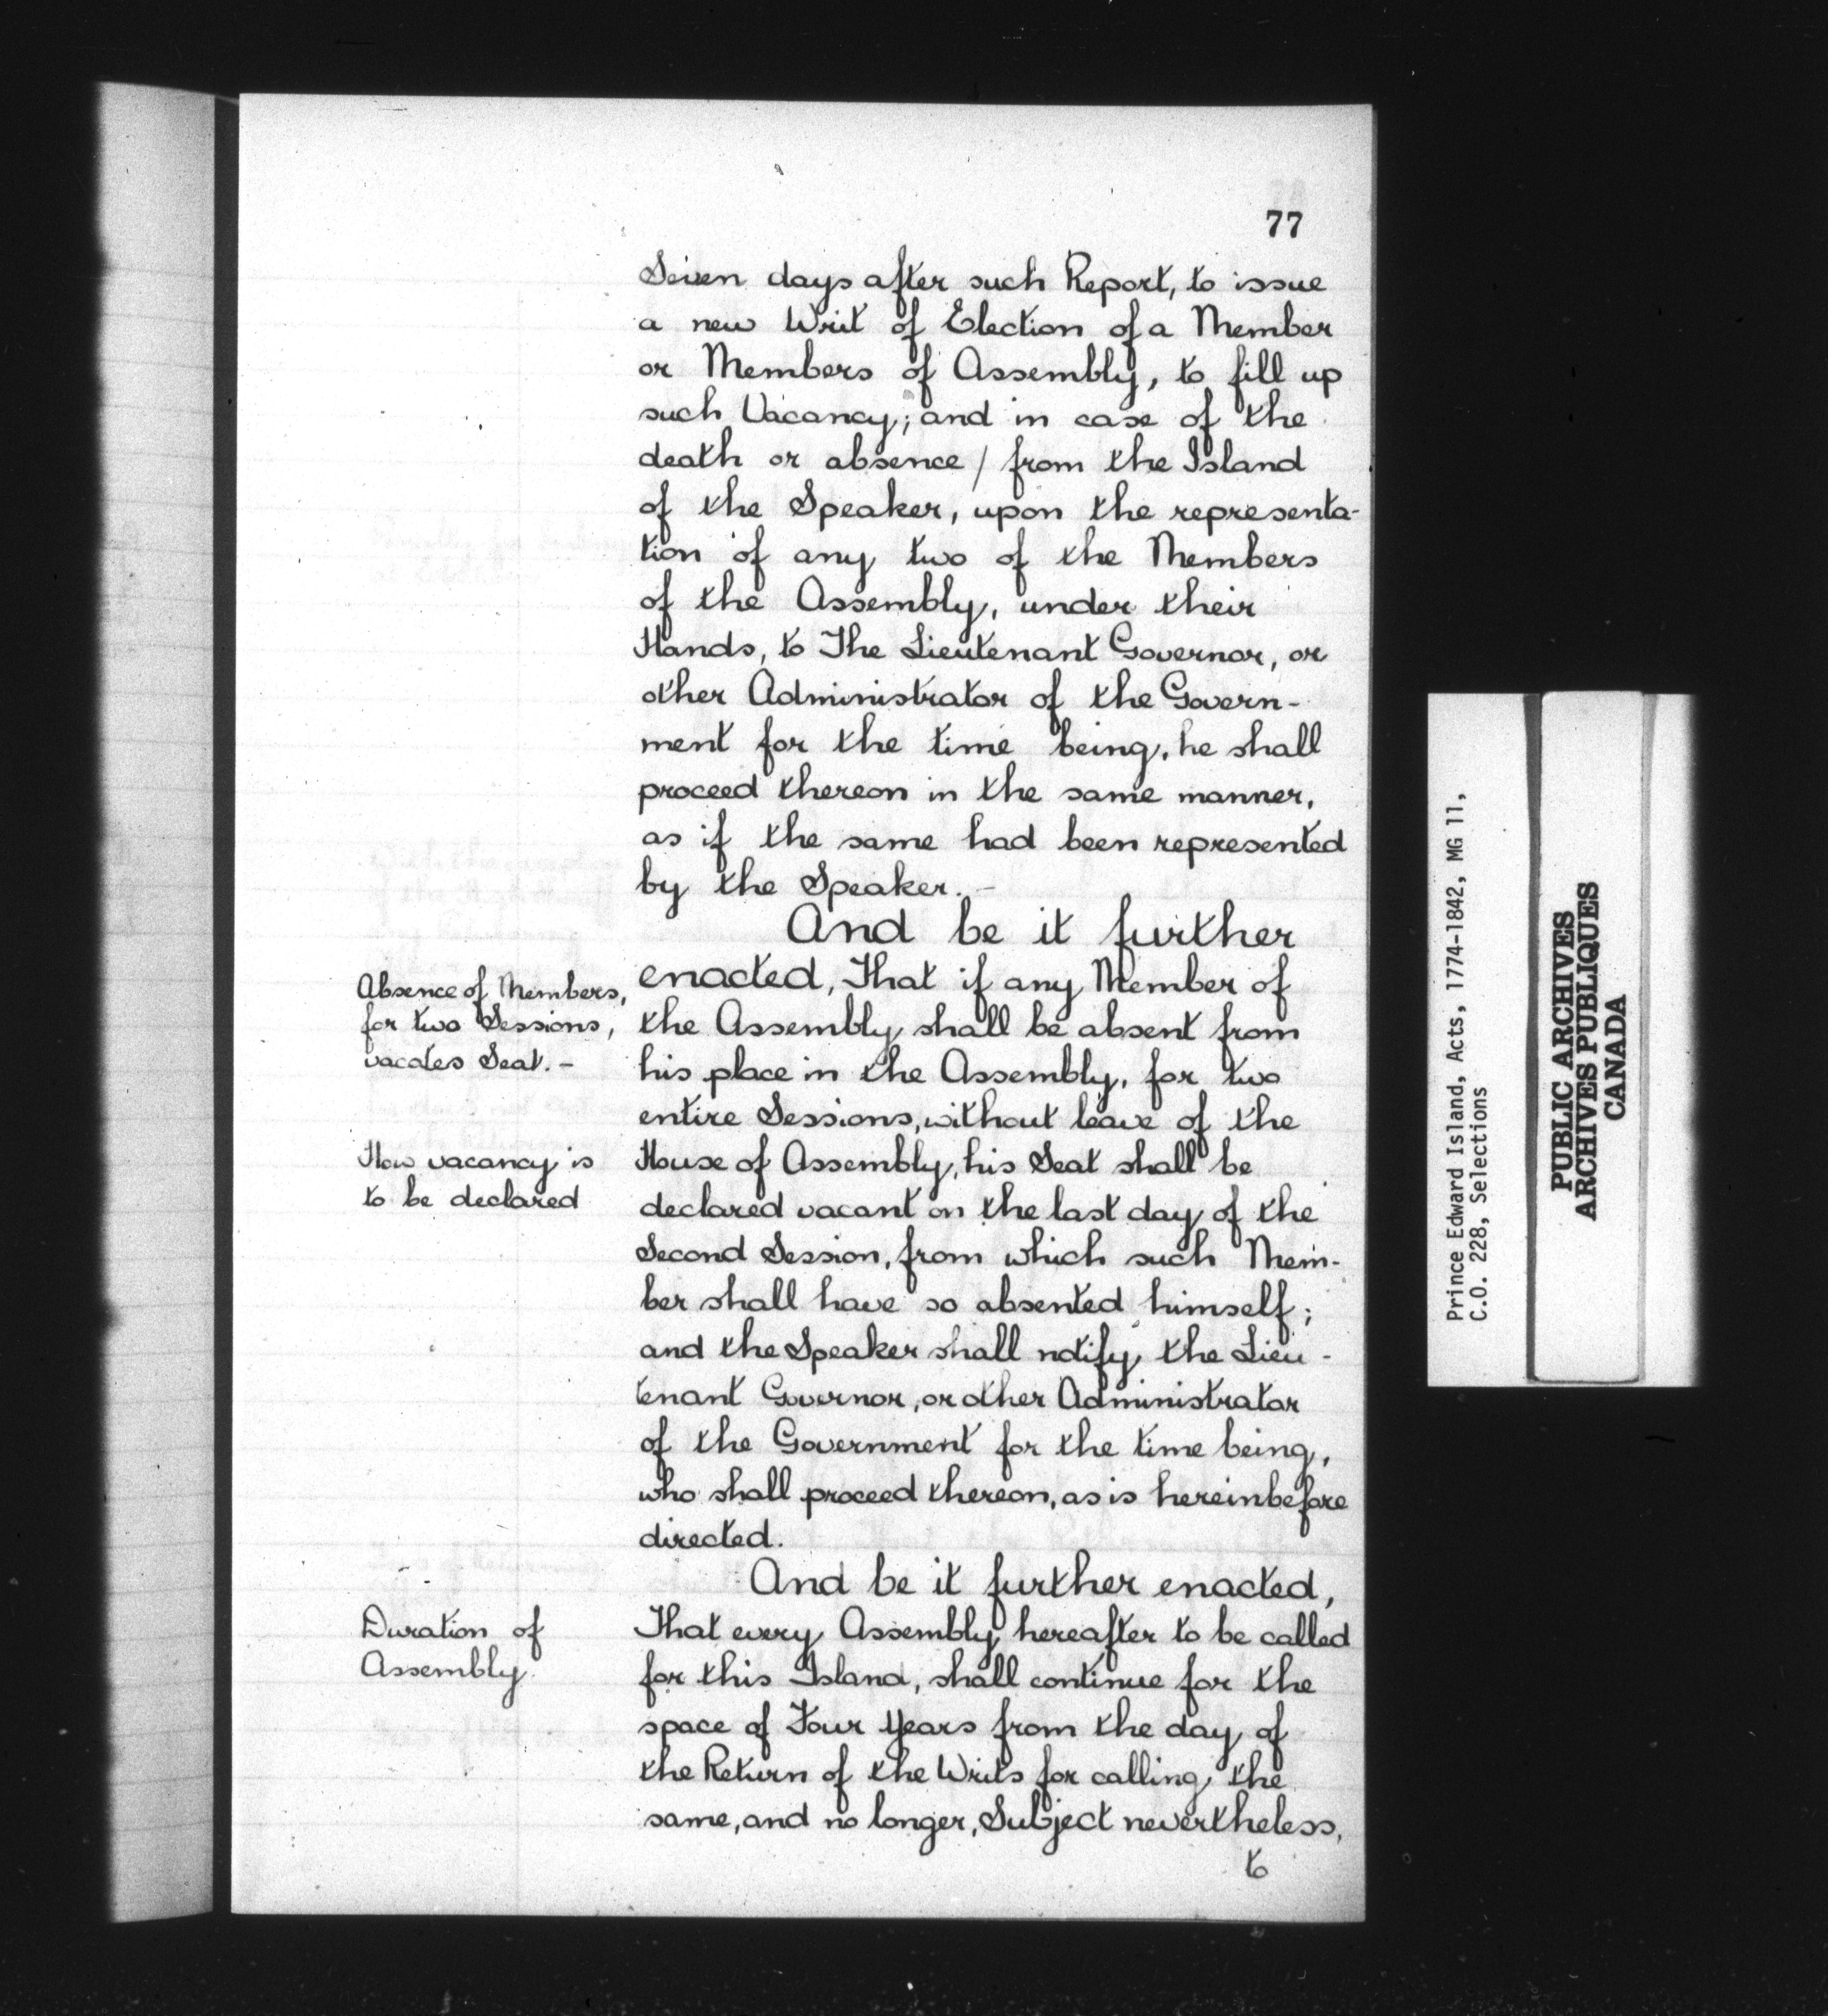 77
Seven days after such Report, to issue
a new Writ of Election of a Member
or Members of Assembly, to fill up
such Vacancy; and in case of the
death or absence / from the Island
of the Speaker, upon the representa-
tion of any two of the Members
of the Assembly, under their
Hands, to The Lieutenant Governor, or
other Administrator of the Govern-
ment for the time being, he shall
proceed thereon in the same manner,
as if the same had been represented
by the Speaker. -
And be it further
Absence of Members,
for two Sessions,
vacates Seat. -
enacted, That if any Member of
the Assembly shall be absent from
his place in the Assembly, for two
entire Sessions, without leave of the
How vacancy is
to be declared
House of Assembly, his Seat shall be
declared vacant on the last day of the
Second Session, from which such Mem-
ber shall have so absented himself;
and the Speaker shall notify the Lieu-
tenant Governor, or other Administrator
of the Government for the time being,
who shall proceed thereon, as is hereinbefore
directed.
And be it further enacted,
Duration of
Assembly.
That every Assembly hereafter to be called
for this Island, shall continue for the
space of Four Years from the day of
the Return of the Writs for calling the
same, and no longer, Subject nevertheless,
to
Prince Edward Island, Acts, 1774-1842, MG 11,
C.O. 228, Selections
PUBLIC ARCHIVES
ARCHIVES PUBLIQUES
CANADA